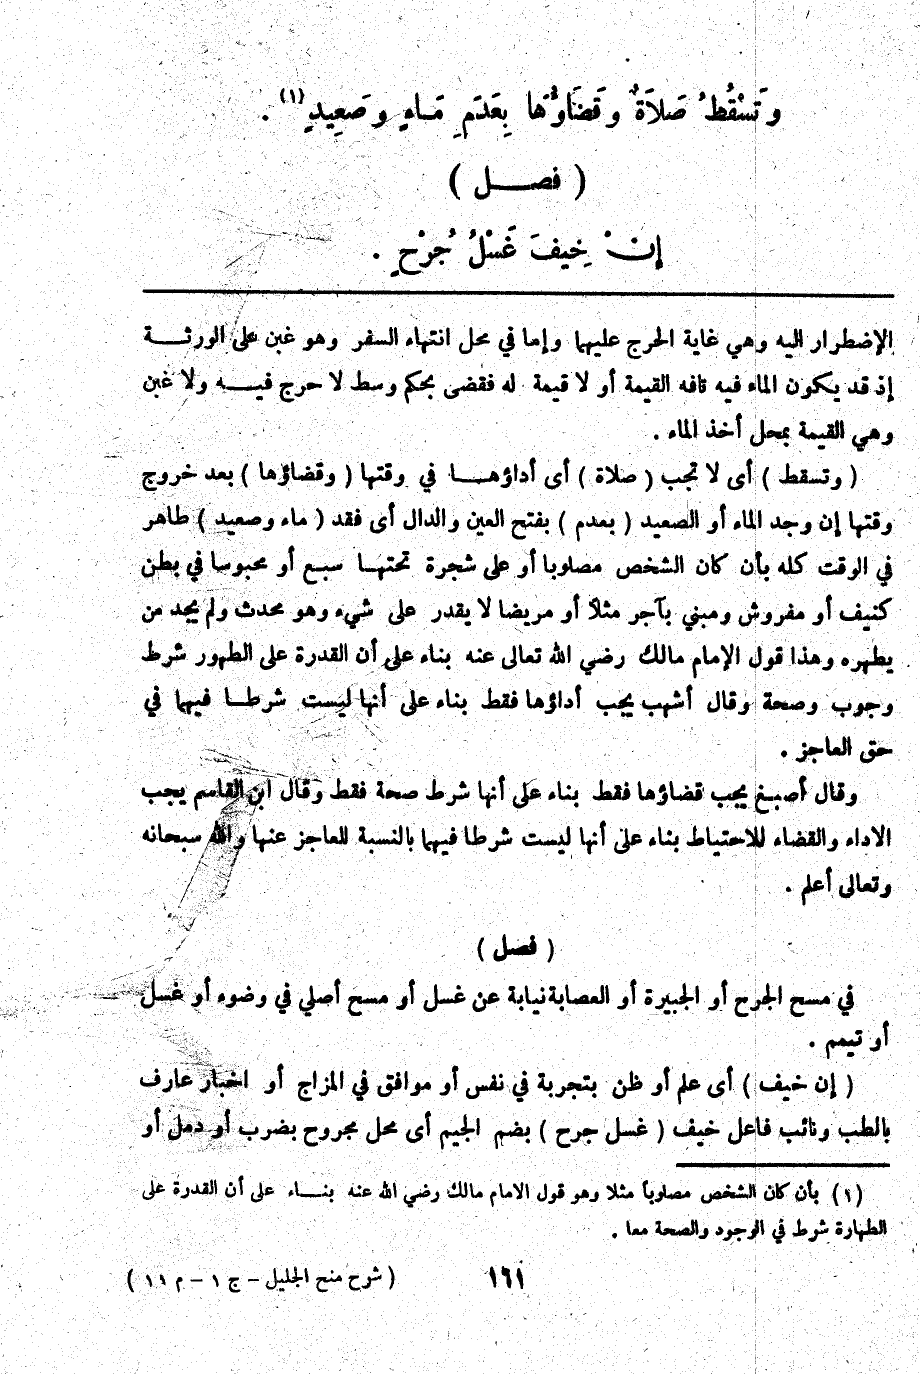 وَتَسْقُطُ صَلَاةٌ وَقَضَاؤُهَا بِعَدَمِ مَاءٍ وَصَعِيدٍ (١) .
( فصل )
إِنْ خِيفَ غَسْلُ جُرْحٍ .
الإضطرار اليه وهي غاية الحرج عليهما وإما في محل انتهاء السفر وهو غبن على الورثة
إذ قد يكون الماء فيه تافه القيمة أو لا قيمة له فقضى بحكم وسط لا حرج فيه ولا غبن
وهي القيمة بمحل أخذ الماء .
( وتسقط ) أى لا تجب ( صلاة ) أى أداؤها في وقتها ( وقضاؤها ) بعد خروج
وقتها إن وجد الماء أو الصعيد ( بعدم ) بفتح العين والدال أى فقد ( ماء وصعيد ) طاهر
في الوقت كله بأن كان الشخص مصلوبا أو على شجرة تحتها سبع أو محبوسا في بطن
كنيف أو مفروش ومبني بآجر مثلاً أو مريضا لا يقدر على شيء وهو محدث ولم يجد من
يطهره وهذا قول الإمام مالك رضي الله تعالى عنه بناء على أن القدرة على الطهور شرط
وجوب وصحة وقال أشهب يجب أداؤها فقط بناء على أنها ليست شرطا فيهما في
حق العاجز .
وقال أصبغ يجب قضاؤها فقط بناء على أنها شرط صحة فقط وقال ابن القاسم يجب
الاداء والقضاء للاحتياط بناء على أنها ليست شرطا فيهما بالنسبة للعاجز عنها والله سبحانه
وتعالى أعلم .
( فصل )
في مسح الجرح أو الجبيرة أو العصابة نيابة عن غسل أو مسح أصلي في وضوء أو غسل
أو تيمم .
( إن خيف ) أى علم أو ظن بتجربة في نفس أو موافق في المزاج أو اخبار عارف
بالطب ونائب فاعل خيف ( غسل جرح ) بضم الجيم أى محل مجروح بضرب أو دمل أو
(١) بأن كان الشخص مصلوباً مثلا وهو قول الامام مالك رضي الله عنه بناء على أن القدرة على
الطهارة شرط في الوجود والصحة معا .
١٦١
( شرح منح الجليل – ج ١ – م ١١ )